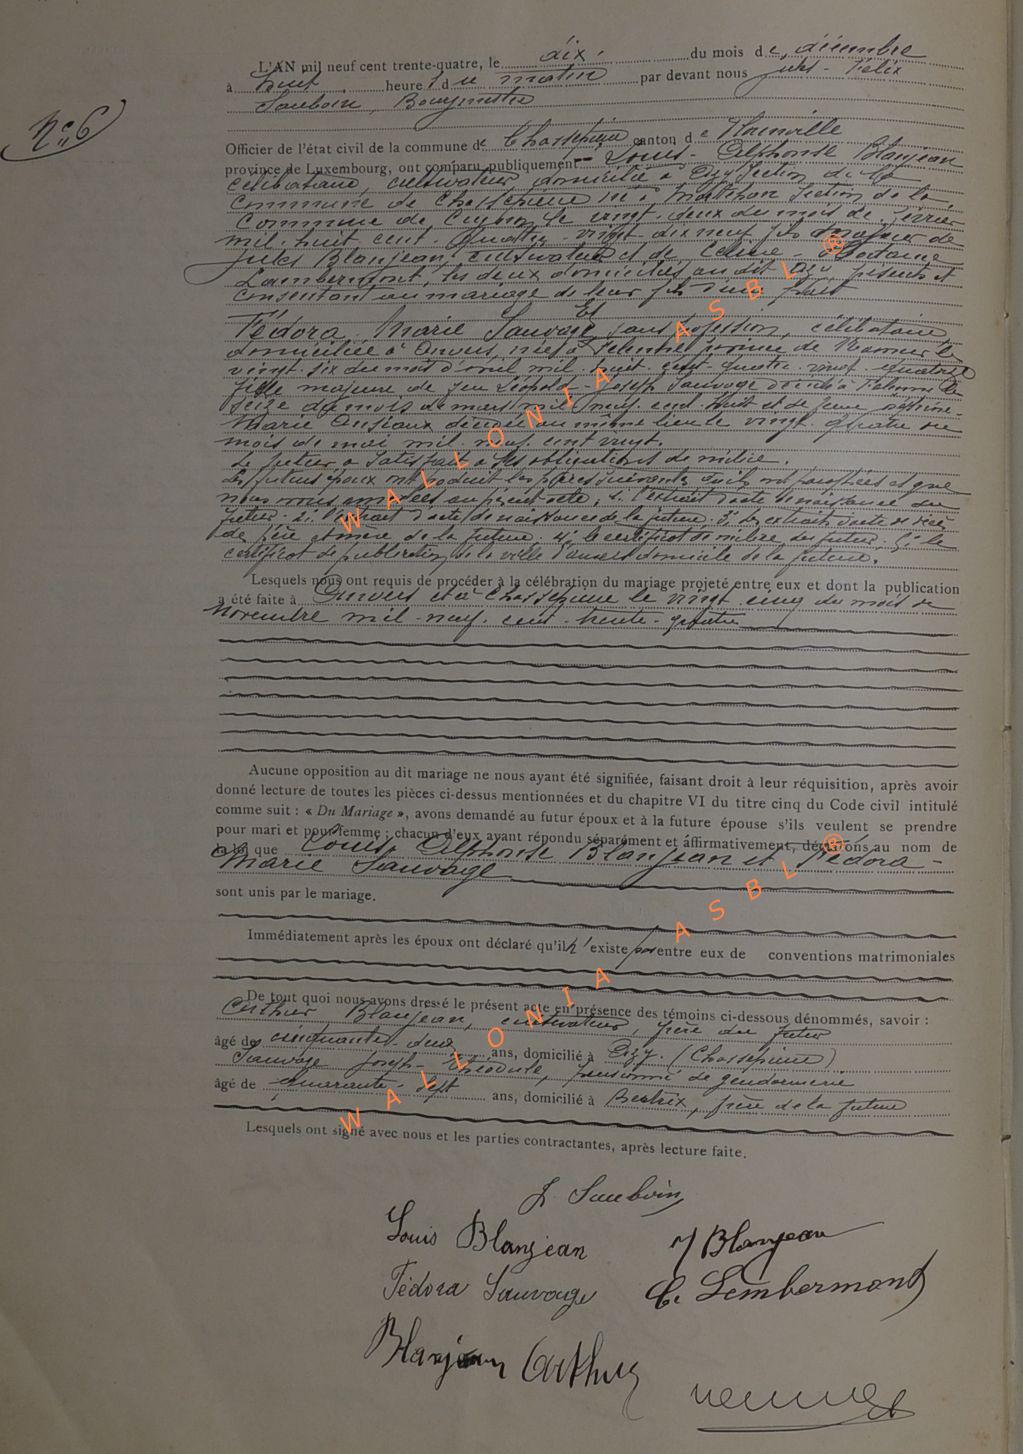 N° 6
L'AN mil neuf cent trente-quatre, le dix du mois de décembre
à huit heures du matin par devant nous Jules - Félix
Sauboin, Bourgmestre
Officier de l'état civil de la commune de Chassepierre canton de
province de Luxembourg, ont comparu publiquement Louis - Alphonse Blanjean
célibataire, cultivateur, domicilié à Azy section de la
commune de Chassepierre né à section de la
commune de le vingt-deux du mois de
mil huit cent quatre-vingt-dix neuf fils majeur de
Jules Blanjean, cultivateur et de Céline
Lambermont, les deux domiciliés au dit Azy, présents et
consentant au mariage de leur fils d'une part
Et
Fédora Marie Sauvage sans profession, célibataire
domiciliée à Anvers, née à province de Namur le
vingt six du mois d'avril mil huit cent quatre-vingt quatorze
fille majeure de feu Léopold - Joseph Sauvage décédé à le
seize du mois de mars mil neuf cent huit et de feue
Marie décédée au même lieu le vingt quatre du
mois de mai mil neuf cent vingt.
Le futur a satisfait à ses obligations de milice.
Les futurs époux ont produit les pièces suivantes qu'ils ont paraphées et que
nous avons annexées au présent acte, 1. l'extrait d'acte de naissance du
futur. 2. l'extrait d'acte de naissance de la future. 3. les extraits d'acte de décès
de père et mère de la future. 4. le certificat de milice du futur. 5. le
certificat de publication de la ville d'Anvers domicile de la future.
Lesquels nous ont requis de procéder à la célébration du mariage projeté entre eux et dont la publication
a été faite à Anvers et à Chassepierre le vingt cinq du mois de
Novembre mil - neuf - cent - trente - quatre
Aucune opposition au dit mariage ne nous ayant été signifiée, faisant droit à leur réquisition, après avoir
donné lecture de toutes les pièces ci-dessus mentionnées et du chapitre VI du titre cinq du Code civil intitulé
comme suit : « Du Mariage », avons demandé au futur époux et à la future épouse s'ils veulent se prendre
pour mari et pour femme ; chacun d'eux ayant répondu séparément et affirmativement, déclarons au nom de
la loi que Louis, Alphonse Blanjean et Fédora -
Marie Sauvage
sont unis par le mariage.
Immédiatement après les époux ont déclaré qu'il n'existe pas entre eux de conventions matrimoniales
De tout quoi nous avons dressé le présent acte en présence des témoins ci-dessous dénommés, savoir :
Arthur Blanjean, cultivateur, frère du futur
âgé de cinquante-deux ans, domicilié à Azy. (Chassepierre)
Sauvage Joseph - Théodule, pensionné de gendarmerie
âgé de quarante - sept ans, domicilié à Bertrix, frère de la future
Lesquels ont signé avec nous et les parties contractantes, après lecture faite.
J. Sauboin
Louis Blanjean J Blanjean
Fédora Sauvage C. Lambermont
Blanjean Arthur
WALLONIA ASBL ®
WALLONIA ASBL ®